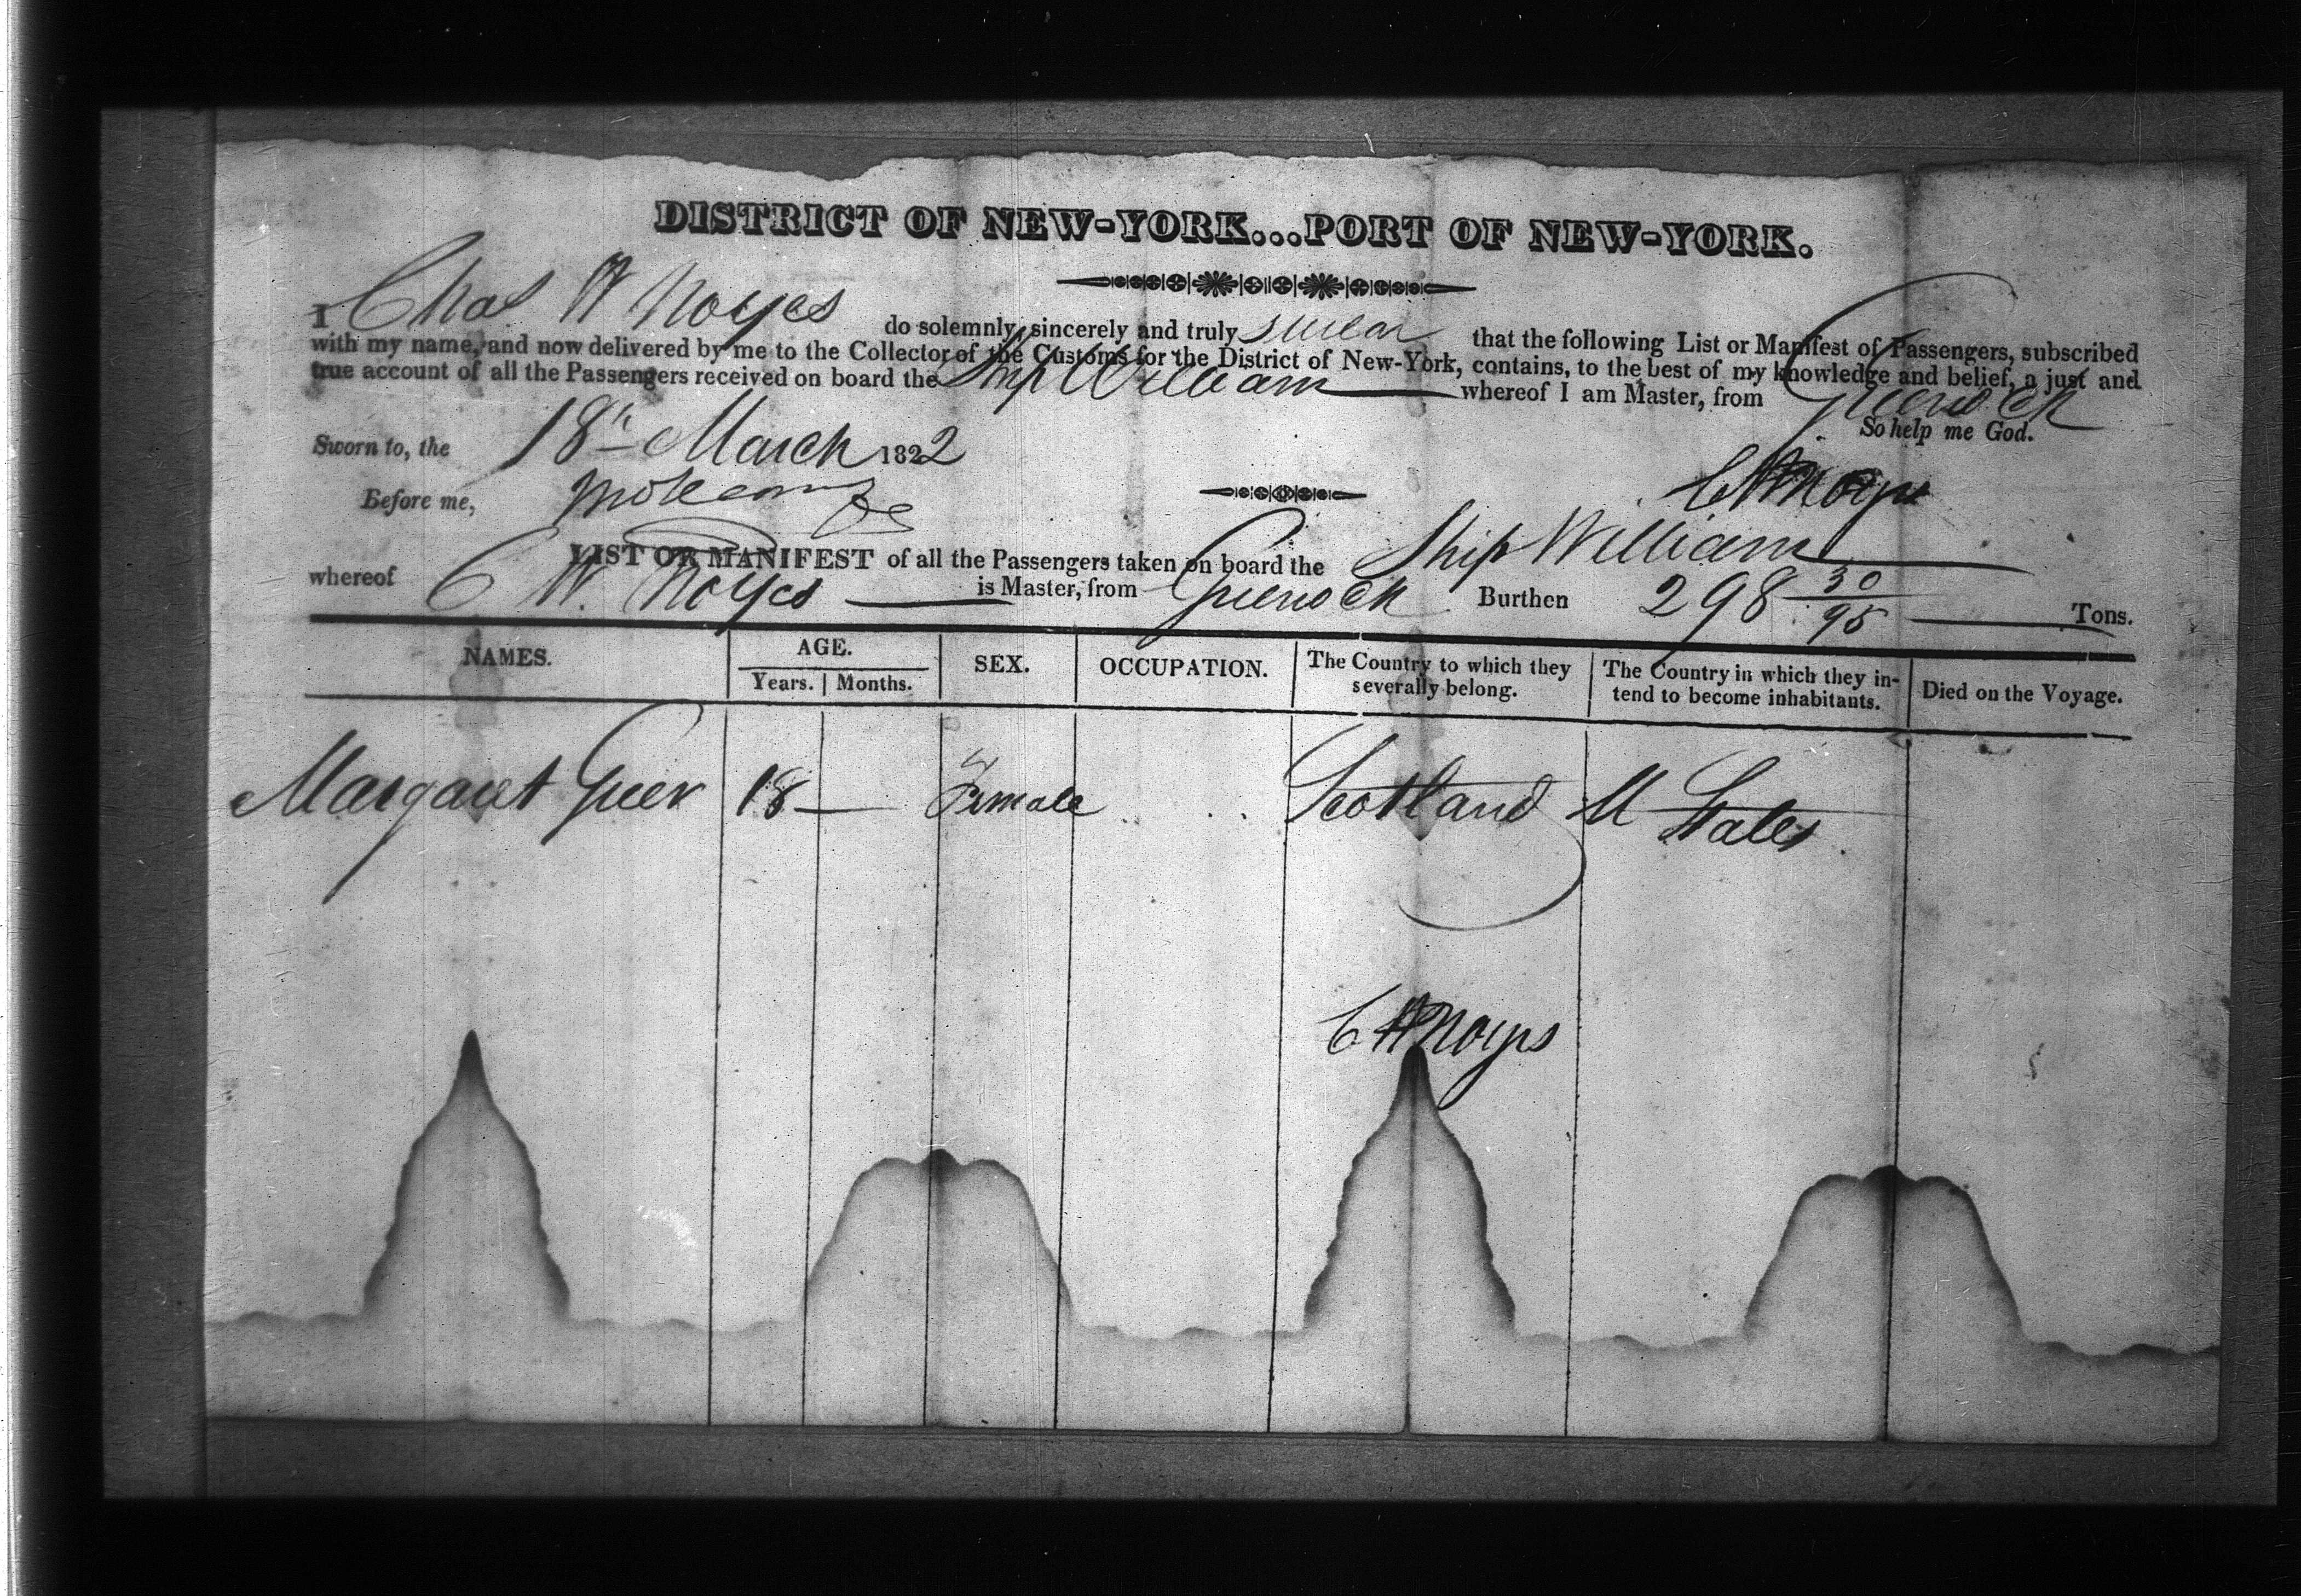 DISTRICT OF NEW-YORK...PORT OF NEW-YORK.
I Chas W Noyes do solemnly, sincerely and truly swear that the following List or Manifest of Passengers, subscribed
with my name, and now delivered by me to the Collector of the Customs for the District of New-York, contains, to the best of my knowledge and belief, a just and
true account of all the Passengers received on board the Ship William whereof I am Master, from Greenock
So help me God.
Sworn to, the 18th March 1822
CW Noyes
Before me,
LIST OR MANIFEST of all the Passengers taken on board the Ship William
whereof C W. Noyes is Master, from Greenock Burthen 298 30/95 Tons.
NAMES. AGE. SEX. OCCUPATION. The Country to which they severally belong. The Country in which they in-tend to become inhabitants. Died on the Voyage.
Years. Months.
Margaret Greer 18 — Female Scotland U States
CW Noyes